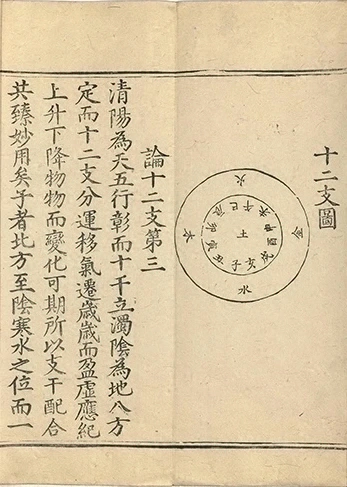 十二支圖
火
金
水
木
土
子
丑
寅
卯
辰
巳
午
未
申
酉
戌
亥
論十二支第三
清陽為天五行彰而十千立濁陰為地八方
定而十二支分運移氣遷歲歲而盈虛應紀
上升下降物物而變化可期所以支干配合
共臻妙用矣子者北方至陰寒水之位而一